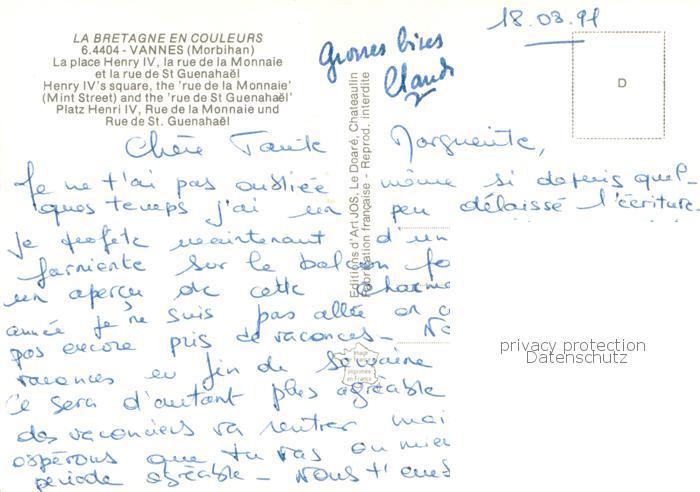 18.08.91
LA BRETAGNE EN COULEURS
6.4404 - VANNES (Morbihan)
La place Henry IV, la rue de la Monnaie
et la rue de St Guenahaël
Henry IV's square, the 'rue de la Monnaie'
(Mint Street) and the 'rue de St Guenahaël'
Platz Henri IV, Rue de la Monnaie und
Rue de St. Guenahaël
Grosses bises
Claude
D
Editions d'Art JOS, Le Doaré, Chateaulin
Fabrication française - Reprod. interdite
Chère Tante Marguerite,
Je ne t'ai pas oubliée même si depuis quel-
ques temps j'ai un peu délaissé l'écriture.
Je profite maintenant d'un
farniente sur le balcon
un aperçu de cette
année je ne suis pas allée
pas encore pris de vacances -
vacances en fin de semaine
Ce sera d'autant plus agréable
des vacanciers va rentrer
espérons que tu vas
période agréable - Nous t'
image
de France
imprimée
en France
privacy protection
Datenschutz